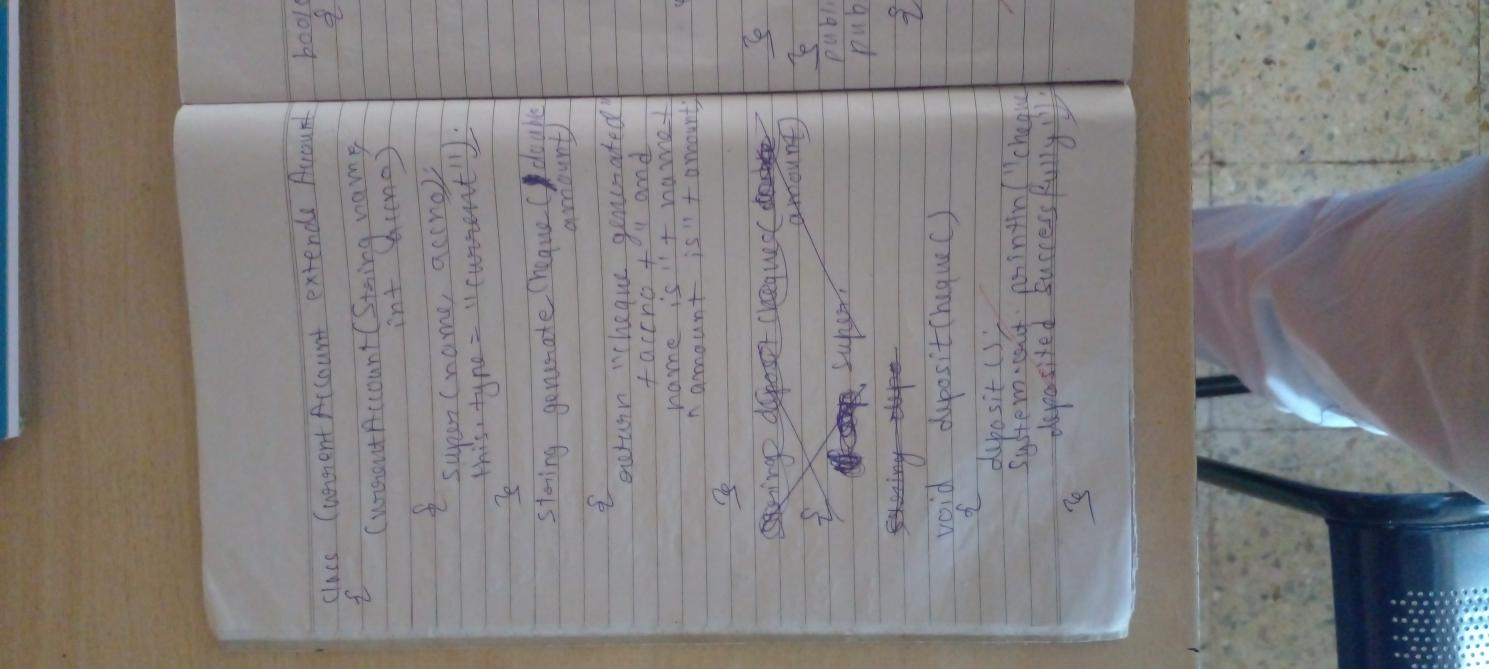 class CurrentAccount extends Account
{
CurrentAccount(String name,
int accno)
{
super(name, accno);
this.type = "current");
}
string generateCheque(double
amount)
{
return "cheque generated"
+ accno + " and
name is" + name +
" amount is" + amount;
}
String deposit Cheque(
amount)
{
super.
void depositCheque()
{
deposit();
System.out.println("cheque
deposited successfully");
}
{
}
}
publi
pub
{